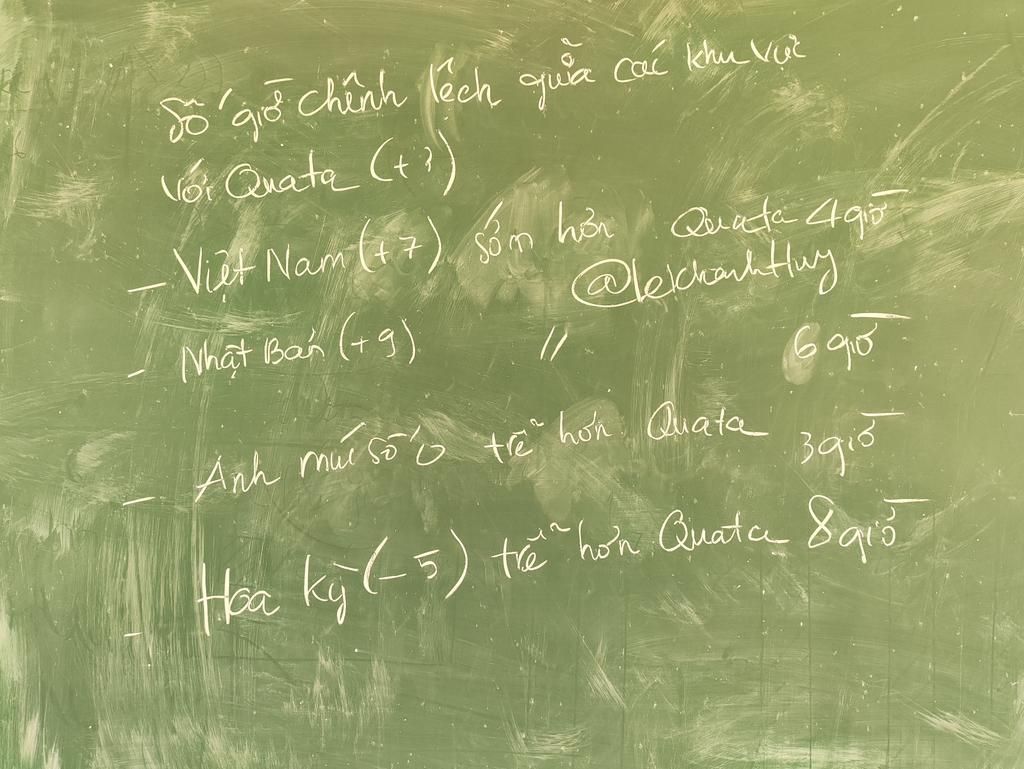 Số giờ chênh lệch giữa các khu vực
với Quata (+3)
- Việt Nam (+7) sớm hơn Quata 4 giờ
@lekhanhHuy
- Nhật Bản (+9) // 6 giờ
- Anh múi số 0 trễ hơn Quata 3 giờ
- Hoa kỳ (-5) trễ hơn Quata 8 giờ